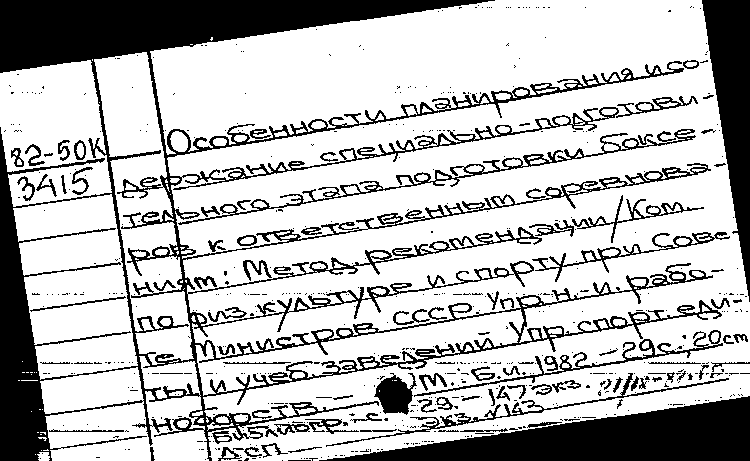 82-50К
3415
Особенности планирования и со-
держание специально-подготови-
тельного этапа подготовки боксе-
ров к ответственным соревнова-
ниям: Метод. рекомендации / Ком.
по физ. культуре и спорту при Сове-
те Министров СССР. Упр. н.-и. рабо-
ты и учеб. заведений. Упр. спорт. еди-
ноборств. – М.: Б.и., 1982. – 29 с.; 20 см
Библиогр.: с. 29. – 147 экз.
ДСП экз. №143